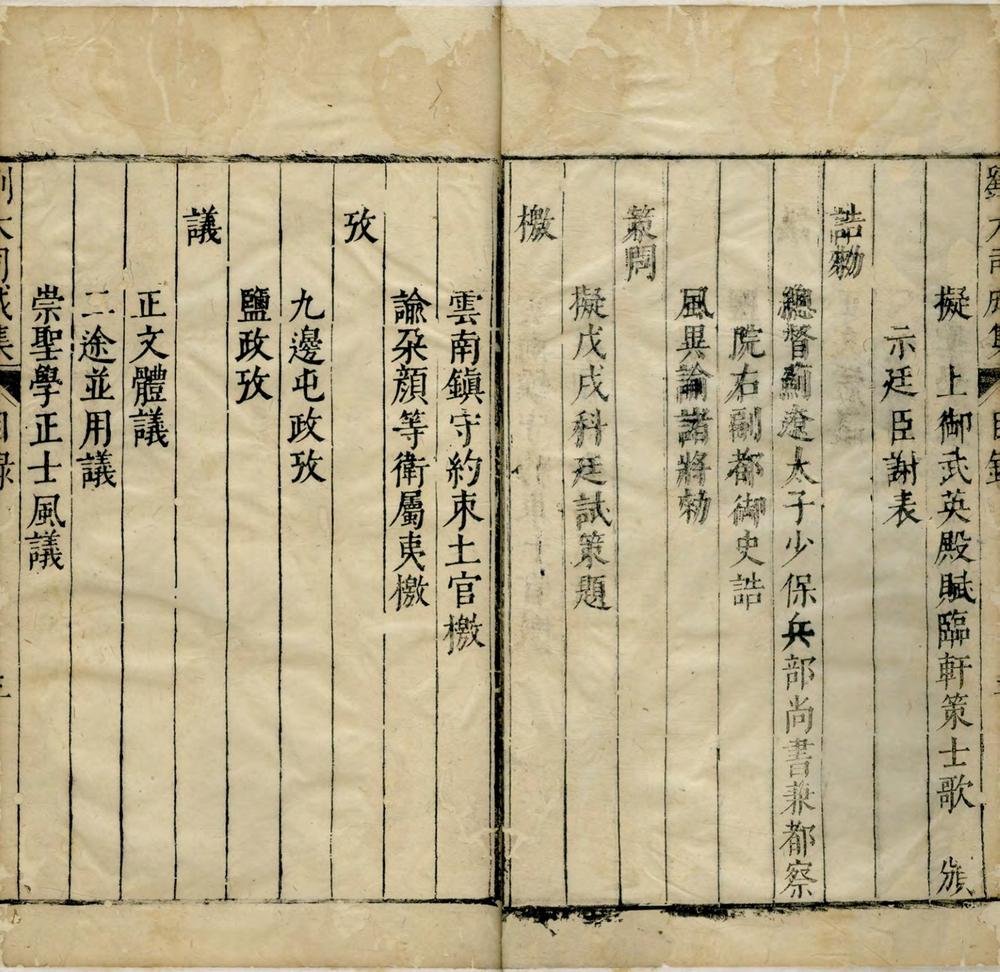 擬　上御武英殿賦臨軒策士歌　頒
示廷臣謝表
誥勅
總督薊遼太子少保兵部尚書兼都察
院右副都御史誥
風異諭諸將勅
策問
擬戊戌科廷試策題
檄
雲南鎮守約束土官檄
諭朶顏等衛屬夷檄
攷
九邊屯政攷
鹽政攷
議
正文體議
二途並用議
崇聖學正士風議